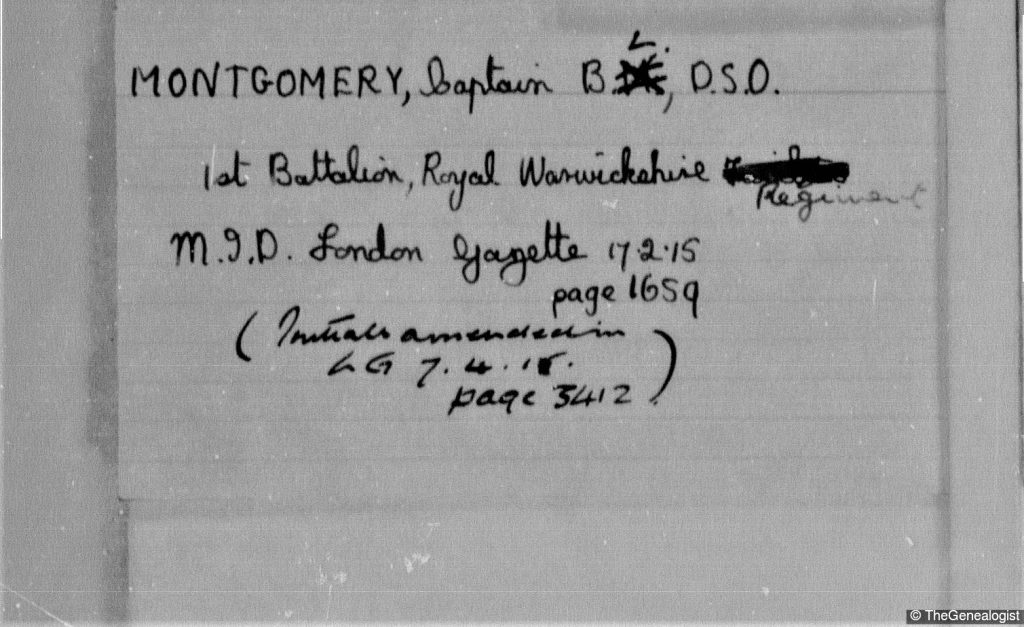 L.
MONTGOMERY, Captain B. , D.S.O.
1st Battalion, Royal Warwickshire
Regiment
M.I.D. London Gazette 17.2.15
page 1659
(Initials amended in
LG 7.4.15.
page 3412.)
© TheGenealogist